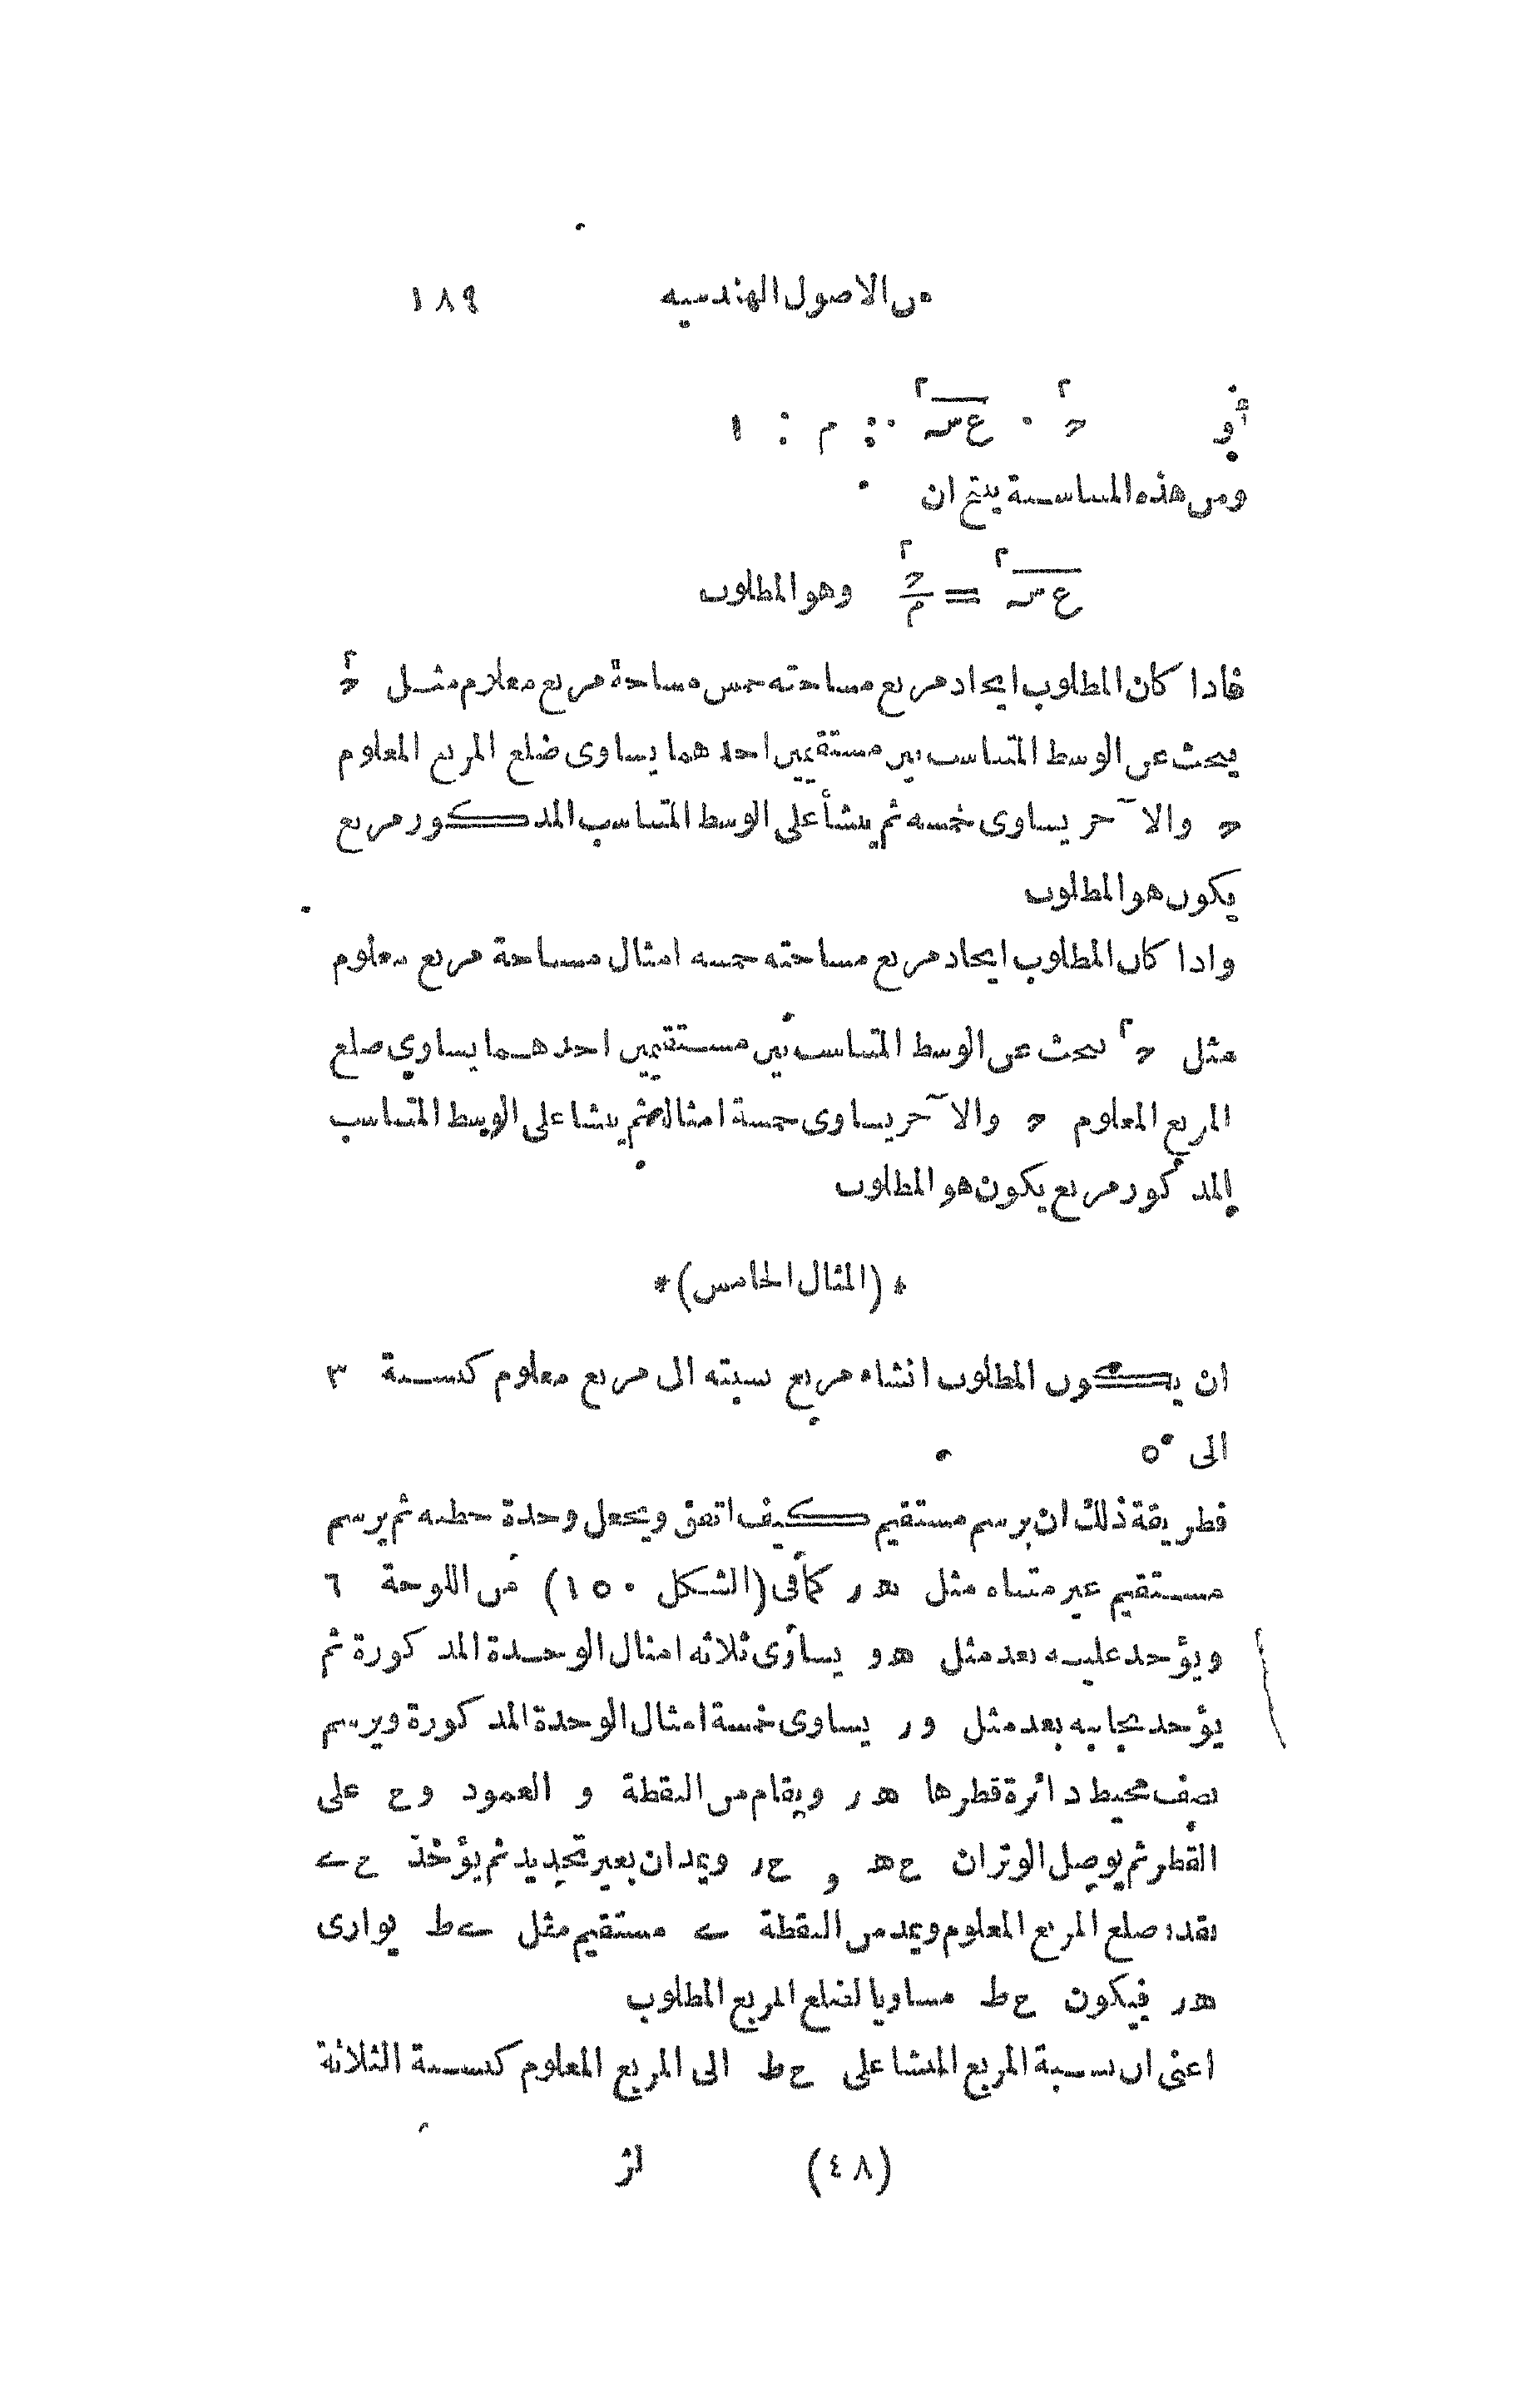 من الاصول الهندسيه ١٨٩
أو حـ٢ : ع س٢ :: م : ١
ومن هذه المناسبة ينتج ان
ع س٢ = حـ٢/م وهو المطلوب
فاذا كان المطلوب ايجاد مربع مساحته خمس مساحة مربع معلوم مثل حـ٢
يبحث عن الوسط المتناسب بين مستقيمين احدهما يساوى ضلع المربع المعلوم
حـ والاآخر يساوى خمسه ثم ينشأ على الوسط المتناسب المذكور مربع
يكون هو المطلوب
واذا كان المطلوب ايجاد مربع مساحته خمسه امثال مساحة مربع معلوم
مثل حـ٢ يبحث عن الوسط المتناسب بين مستقيمين احدهما يساوي ضلع
المربع المعلوم حـ والاآخر يساوى خمسة امثاله ثم ينشا على الوسط المتناسب
المذكور مربع يكون هو المطلوب
*(المثال الخامس)*
ان يكون المطلوب انشاء مربع نسبته الى مربع معلوم كنسبة ٣
الى ٥
فطريقة ذلك ان يرسم مستقيم كيف اتفق ويجعل وحدة خطيه ثم يرسم
مستقيم غير متناه مثل هر كما فى (الشكل ١٥٠) من اللوحة ٦
ويؤخذ عليه بعد مثل هو يساوى ثلاثه امثال الوحدة المذكورة ثم
يؤخذ بجانبه بعد مثل ور يساوى خمسة امثال الوحدة المذكورة ويرسم
نصف محيط دائرة قطرها هر ويقام من النقطة و العمود وح على
القطر ثم يوصل الوتران حه و حر ويمدان بغير تحديد ثم يؤخذ حے
بقدر ضلع المربع المعلوم ويمد من النقطة ے مستقيم مثل ےط يوازى
هر فيكون حط مساويا لضلع المربع المطلوب
اعنى ان نسبة المربع المنشا على حط الى المربع المعلوم كنسبة الثلاثة
(٤٨) لژ